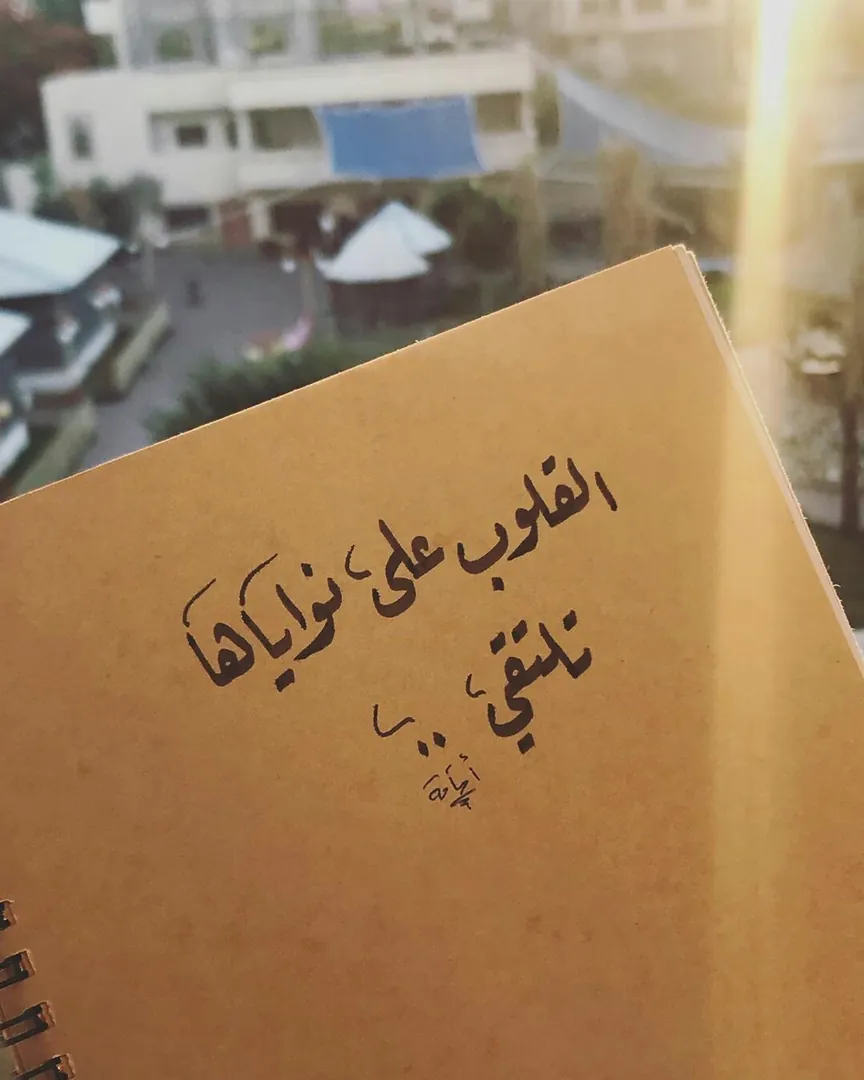 القلوب على نواياها
تلتقي ..